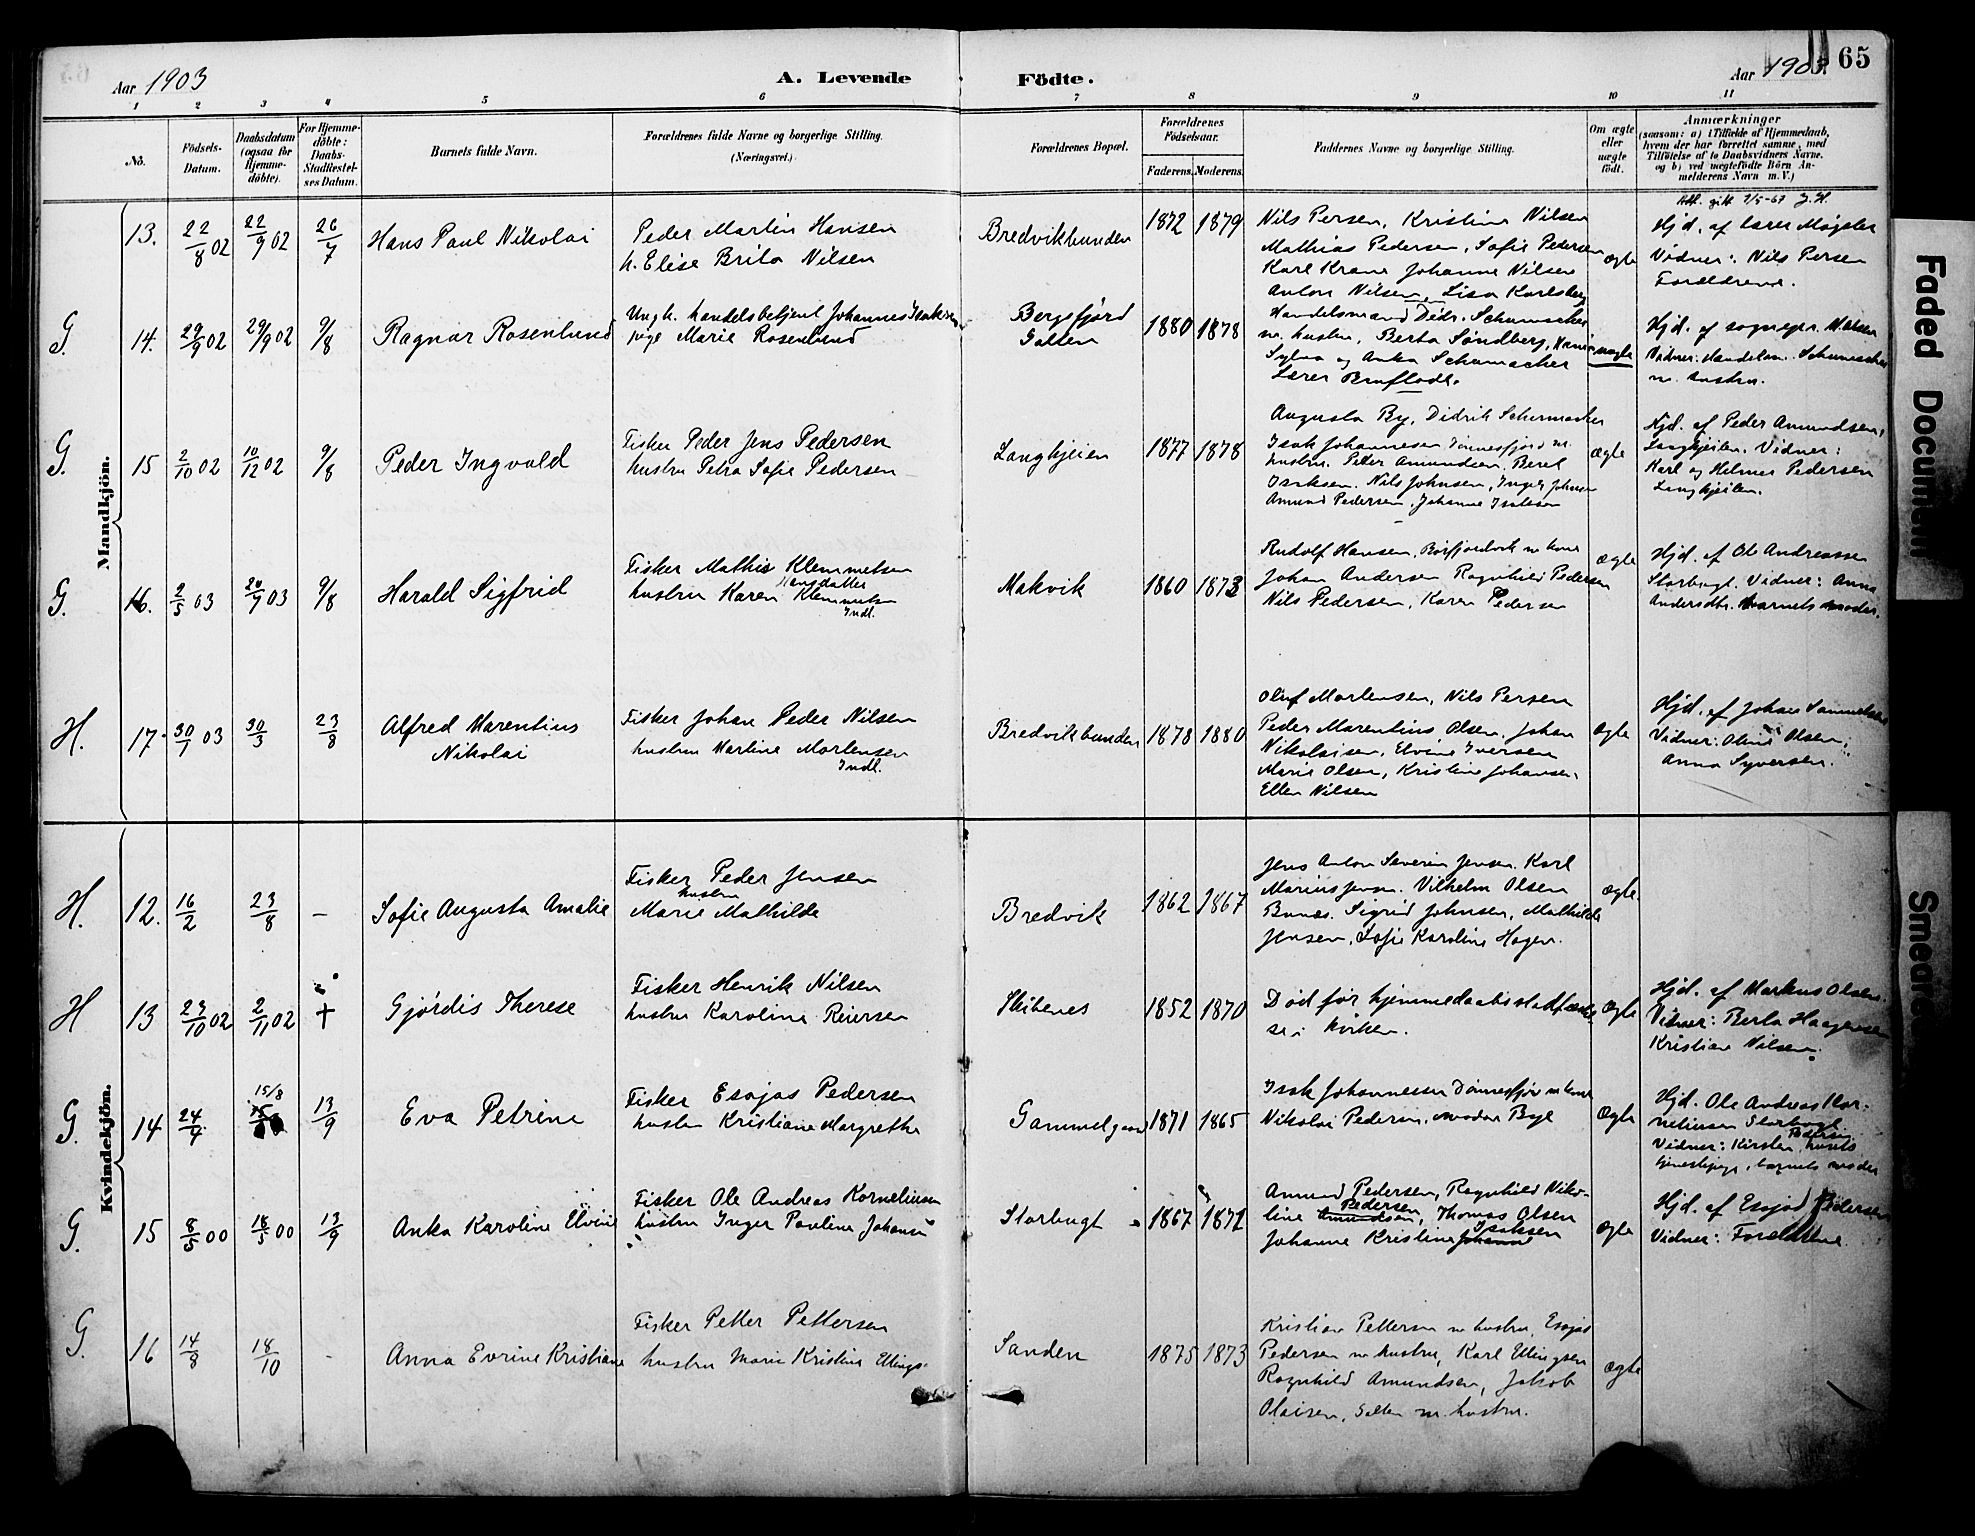 65
Aar 1903
A. Levende
Födte.
Aar 1903.
1 2 3 4 5 6 7 8 9 10 11
No.
Födsels-Datum.
Daabsdatum (ogsaa för Hjemme-döbte).
For Hjemme-döbte: Daabs-Stadfæstel-ses Datum.
Barnets fulde Navn.
Forældrenes fulde Navne og borgerlige Stilling.
(Næringsvei.)
Forældrenes Bopæl.
Forældrenes Födselsaar.
Faderens.
Moderens.
Faddernes Navne og borgerlige Stilling.
Om ægte eller uægte födt.
Anmærkninger
(saasom: a) i Tilfælde af Hjemmedaab,
hvem der har forrettet samme, med
Tilföielse af to Daabsvidners Navne,
og b) ved uægtefödte Börn An-
melderens Navn m. V.)
Mandkjön.
13. 22/8 02 22/9 02 26/7 Hans Paul Nikolai
Peder Martin Hansen
h. Elise Brita Nilsen
Bredvikbunden 1872 1879
Nils Persen, Kristine Nilsen
Mathias Pedersen, Sofie Pedersen
Karl Krane Johanne Nilsen
Anton Nilsen, Lisa Karlsberg
ægte
Hjd. af lærer Møgster
Vidner: Nils Persen
Forældrene.
G. 14. 29/9 02 29/9 02 9/8 Ragnar Rosenlund
Ungk. handelsbetjent Johannes Isaksen
pige Marie Rosenlund
Bergsfjord
Galten
1880 1878
Handelsmand Didr. Schumacher
m. hustru, Berta Sandberg,
Sylva og Anka Schumacher
Lærer Brufladt.
uægte
Hjd. af sognepr.
Vidner: Handelsm. Schumacher
m. hustru.
G. 15 2/10 02 10/12 02 9/8 Peder Ingvald
Fisker Peder Jens Pedersen
hustru Petra Sofie Pedersen
Langkjeilen 1877 1878
Augusta By, Didrik Schumacher
Isak Johannesen Tønnesfjord m.
hustru. Peder Amundsen, Beret
Isaksen. Nils Johnsen, Inger Johnsen
Amund Pedersen, Johanne Isaksen
ægte
Hjd. af Peder Amundsen,
Langkjeilen. Vidner:
Karl og Helmer Pedersen
Langkjeilen.
G. 16. 2/5 03 20/7 03 9/8 Harald Sigfrid
Fisker Mathis Klemmetsen
hustru Karen Hansdatter Klemmetsen
Indl.
Makvik 1860 1873
Rudolf Hansen, Børfjordvik m kone
Johan Andersen Ragnhild Pedersen
Nils Pedersen, Karen Pedersen
ægte
Hjd. af Ole Andreassen
Storbugt. Vidner: Anna
Andersdtr. barnets moder.
H. 17. 30/1 03 30/3 23/8 Alfred Marentius
Nikolai
Fisker Johan Peder Nilsen
hustru Martine Mortensen
Indl.
Bredvikbunden 1878 1880
Oluf Mortensen, Nils Persen
Peder Marentius Olsen, Johan
Nikolaisen, Elvine Iversen
Marie Olsen, Kristine Johansen,
Ellen Nilsen
ægte
Hjd. af Johan Sammelsen
Vidner: Oline Olsen,
Anna Syversen.
Kvindekjön.
H. 12. 16/2 23/8 – Sofie Augusta Amalie
Fisker Peder Jensen
hustru
Marie Mathilde
Bredvik 1862 1867
Jens Anton Severin Jensen. Karl
Marius Jensen. Vilhelm Olsen
Bunæs. Sigrid Johnsen, Mathilde
Jensen, Sofie Karoline Hagen.
ægte.
H 13 23/10 02 2/11 02 + Gjørdis Therese
Fisker Henrik Nilsen
hustru Karoline Reiersen
Skibenes 1852 1870
Død før hjemmedaabsstadfæstel-
se i kirken.
ægte
Hjd. af Markus Olsen.
Vidner: Berta Haagensen
Kristian Nilsen.
G. 14 24/4 15/8 13/9 Eva Petrine
Fisker Esajas Pedersen
hustru Kristiane Margrethe
Gammelgaard 1871 1865
Isak Johannessen Tønnesfjor m kone
Nikolai Pedersen,
ægte
Hjd. Ole Andreas Kor-
neliussen Storbugt.
Vidner: Kirsten Pedersen, husets
tjenestepige, barnets moder
G. 15 8/5 00 18/5 00 13/9 Anka Karoline Elvine
Fisker Ole Andreas Korneliussen
hustru Inger Pauline Johansen
Storbugt 1867 1871
Amund Pedersen, Ragnhild Niko-
line Amundsen Pedersen, Thomas Olsen
Johanne Kristine Johanne Isaksen
ægte
Hjd. af Esajas Pedersen
Vidner: Forældrene.
G. 16 14/8 18/10 – Anna Evrine Kristiane
Fisker Petter Pettersen
hustru Marie Kristine Ellings.
Sanden 1875 1873
Kristian Pettersen m hustru, Esajas
Pedersen m hustru, Karl Ellingsen
Ragnhild Amundsen, Jakob
Olaisen, Galten m. hustru.
ægte
Faded Document
Smeared